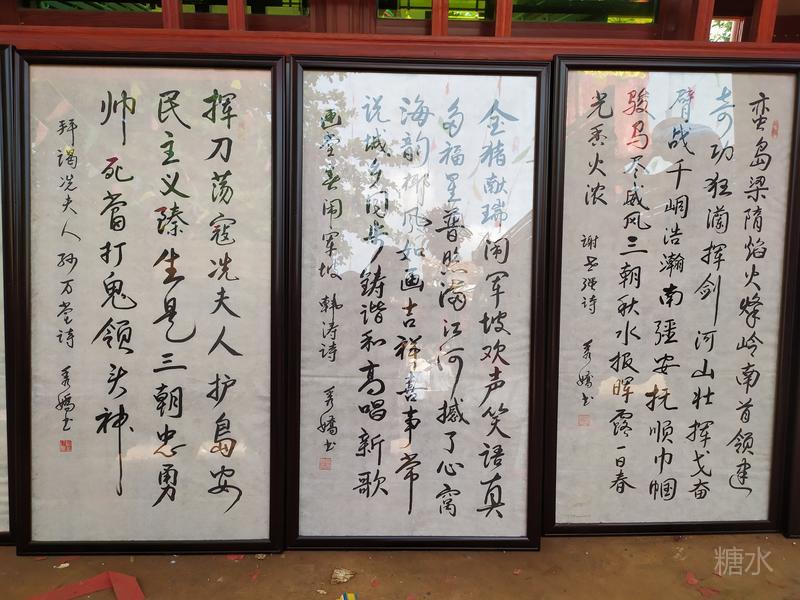 蛮岛梁隋焰火烽岭南首领建
奇功狂澜挥剑河山壮挥戈奋
臂战千峒浩瀚南疆安抚顺巾帼
骏马尽威风三朝秋水报晖露一日春
光香火浓 诗 书
金猪献瑞闹军坡欢声笑语真
多福星普照满江河撼了心窝
海韵椰风如画吉祥喜事常
说城乡同步铸谐和高唱新歌
画堂春闹军坡 韩涛诗 书
挥刀荡寇冼夫人护岛安
民主义臻生是三朝忠勇
帅死當打鬼领头神
拜谒冼夫人 孙万堂诗 书
糖水